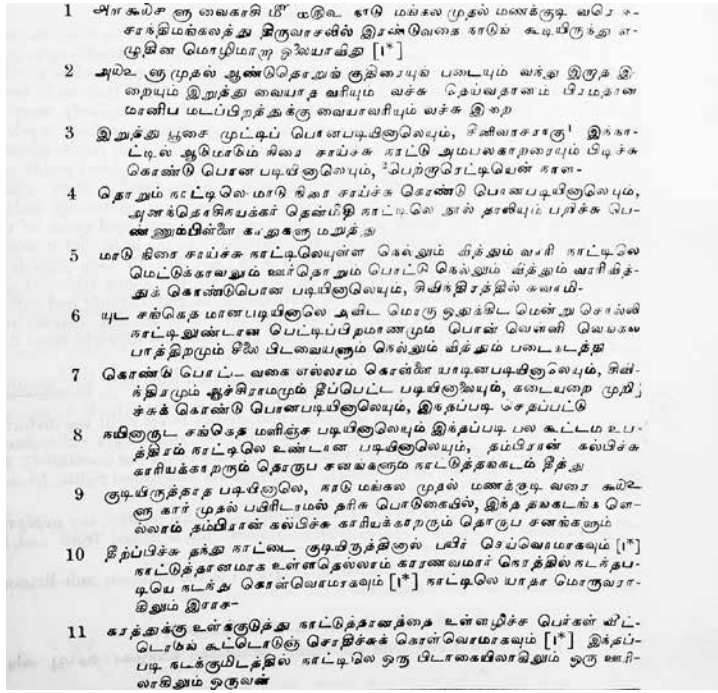 1 அ௱ கூ௰ச ளு வைகாசி மீ் ௰௫உ நாடு மங்கல முதல் மணக்குடி வரெ
சாந்திமங்கலத்து திருவாசலில் இரண்டுவகை நாடுங் கூடியிருந்து எ-
ழுதின மொழிமாறா ஓலையாவிது [।*]
2 ளு முதல் ஆண்டுதொறுங் குதிரையும் படையும் வந்து இறாத இ
றையும் இறுத்து வையாத வரியும் வச்சு தெய்வதானம் பிரமதான
மானிப மடப்பிறத்துக்கு வையாவரியும் வச்சு இறை
3 இறுத்து பூசை முட்டிப் பொனபடியினாலெயும், சினிவாசராகு¹ இந்நா-
ட்டில் ஆடுமாடும் நிரை சாய்ச்சு நாட்டு அம்பலகாறரையும் பிடிச்சு
கொண்டு பொன படியினாலெயும், ²பெற்றுரெட்டியென் நாள-
4 தொறும் நாட்டிலெ மாடு நிரை சாய்ச்சு கொண்டு பொனபடியினாலெயும்,
அனந்தொசிநயக்கர் தென்மிதி நாட்டிலெ நூல் தாலியும் பறிச்சு பெ-
ண்ணும்பிள்ளை காதுகளு மறுத்து
5 மாடு நிரை சாய்ச்சு நாட்டிலெயுள்ள நெல்லும் வித்தும் வாரி நாட்டிலெ
மெட்டுக்காவலும் ஊர்தொறும் பொட்டு நெல்லும் வித்தும் வாரிவித்-
துக் கொண்டுபொன படியினாலெயும், சிவிந்திரத்தில் சுவாமி-
6 யுட சங்கெத மானபடியினாலெ அவிட மொரு ஒதுக்கிட மென்று சொல்லி
நாட்டிலுண்டான பெட்டிப்பிறமாணமும் பொன் வெள்ளி வெங்கல
பாத்திறமும் சீலை பிடவைபளும் நெல்லும் வித்தும் படை நடத்தி
7 கொண்டு பொட்ட வகை எல்லாம் கொள்ளை யாடினபடியினாலெயும், சிவி-
ந்திரமும் ஆச்சிராமமும் தீப்பெட்ட படியினாலெயும், கடையுறை முறி
ச்சுக் கொண்டு பொனபடியினாலெயும், இந்தப்படி செதப்பட்டு
8 நயினாருட சங்கெத மளிஞ்ச படியினாலெயும் இந்தப்படி பல கூட்டம உப-
த்திரம் நாட்டிலெ உண்டான படியினாலெயும், தம்பிரான் கல்பிச்சு
காரியக்காறரும் தொருப சனங்களும் நாட்டுத்தங்கடம் தீத்து
9 குடியிருத்தாத படியினாலெ, நாடு மங்கல முதல் மணக்குடி வரை
ளு கார் முதல் பயிரிடாமல் தரிசு பொடுகையில், இந்த தங்கடங்க ளெ-
ல்லாம் தம்பிரான் கல்பிச்சு காரியக்காறரும் தொருப சனங்களும்
10 தீற்ப்பிச்சு தந்து நாட்டை குடியிருத்தினால் பயிர் செய்வொமாகவும் [।*]
நாட்டுத்தானமாக உள்ளதெல்லாம் காரணவமார் நெரத்தில் நடந்தப-
டியெ நடந்து கொள்வொமாகவும் [।*] நாட்டிலெ யாதா மொருவரா-
கிலும் இராச-
11 கரத்துக்கு உளக்குடுத்து நாட்டுத்தானத்தை உள்ளழிச்ச பெர்கள் வீட்-
டொடுங் கூட்டொடுஞ் சொதிச்சுக் கொள்வொமாகவும் [।*] இந்தப்-
படி நடக்குமிடத்தில் நாட்டிலெ ஒரு பிடாகையிலாகிலும் ஒரு ஊரி-
லாகிலும் ஒருவன்